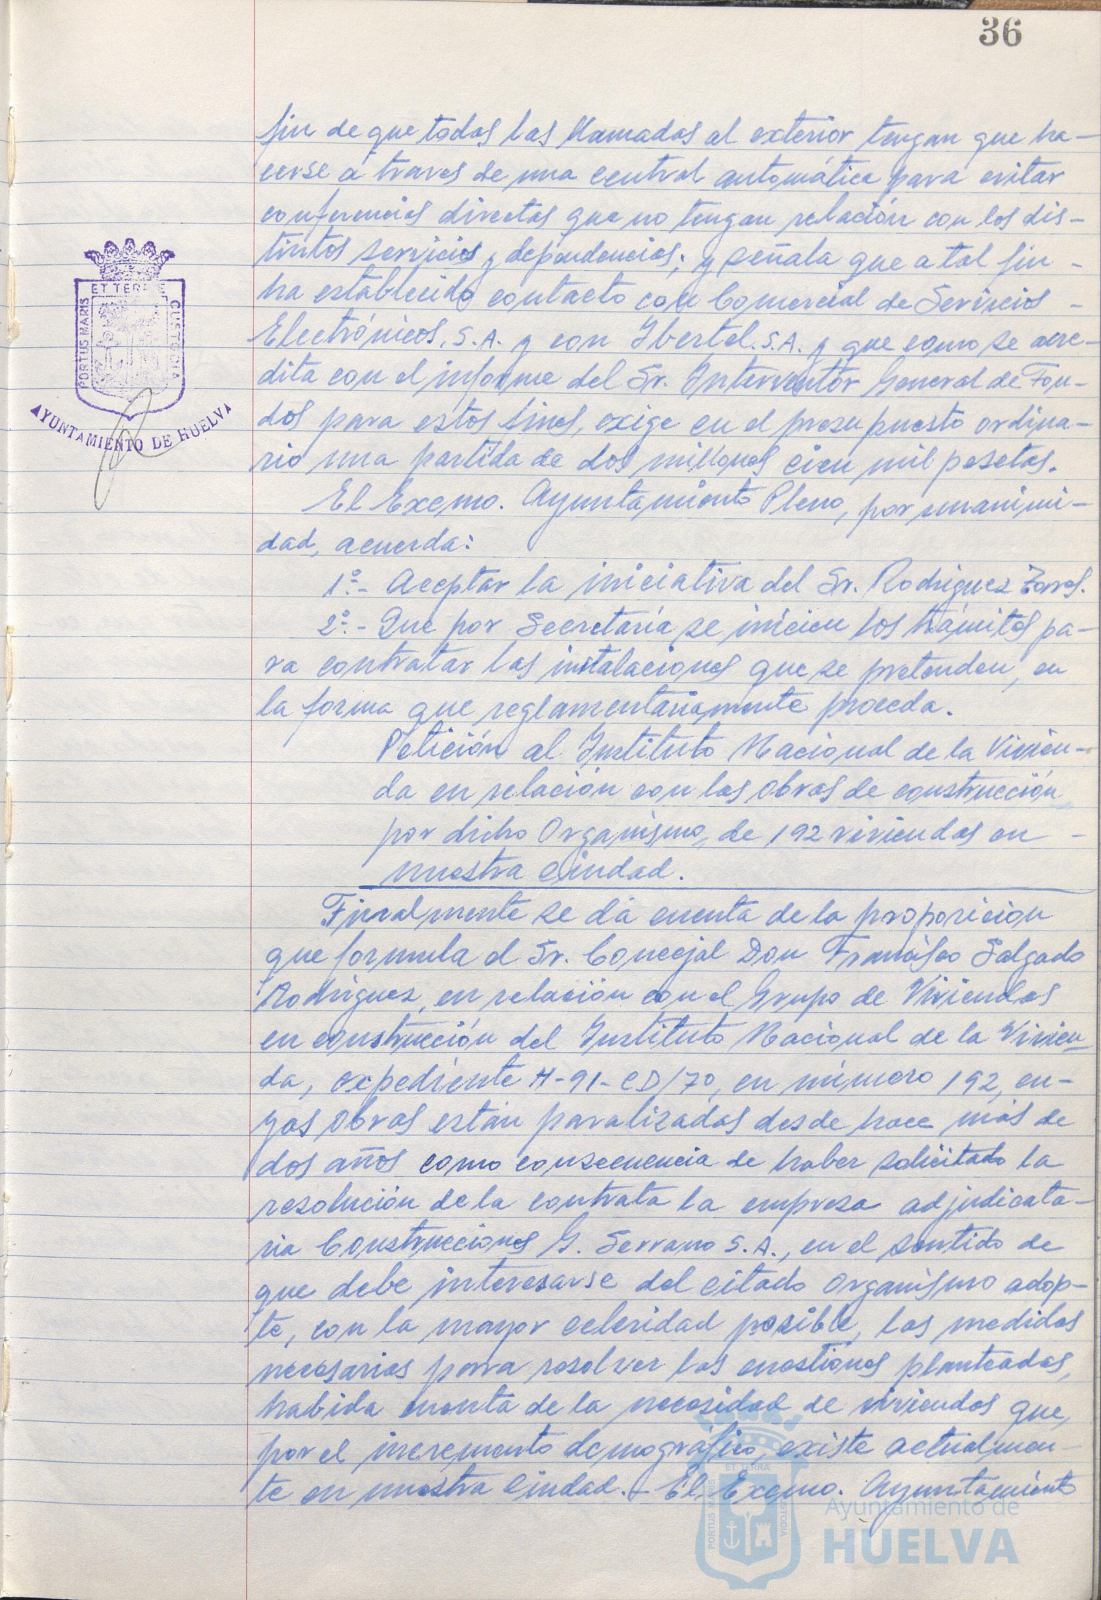 36
fin de que todas las llamadas al exterior tengan que ha-
cerse a través de una central automática para evitar
conferencias directas que no tengan relación con los dis-
tintos servicios y dependencias; y señala que a tal fin -
ha establecido contacto con Comercial de Servicios -
Electrónicos, S.A. y con Ibertel.S.A. y que como se acre-
dita con el informe del Sr. Interventor General de Fon-
dos para estos fines, exige en el presupuesto ordina-
rio una partida de dos millones cien mil pesetas.
El Excmo. Ayuntamiento Pleno, por unanimi-
dad, acuerda:
1º.- Aceptar la iniciativa del Sr. Rodriguez
2º.- Que por Secretaría se inicien los trámites pa-
ra contratar las instalaciones que se pretenden, en
la forma que reglamentariamente proceda.
Petición al Instituto Nacional de la Vivien-
da en relación con las obras de construcción
por dicho Organismo, de 192 viviendas en -
nuestra ciudad.
Finalmente se dá cuenta de la proposición
que formula el Sr. Concejal Don Francisco Salgado
Rodriguez, en relación con el Grupo de Viviendas
en construcción del Instituto Nacional de la Vivien-
da, expediente H-91-CD/70, en número 192, cu-
yas obras están paralizadas desde hace más de
dos años como consecuencia de haber solicitado la
resolución de la contrata la empresa adjudicata-
ria Construcciones G. Serrano S.A., en el sentido de
que debe interesarse del citado Organismo adop-
te, con la mayor celeridad posible, las medidas
necesarias para resolver las cuestiones planteadas,
habida cuenta de la necesidad de viviendas que,
por el incremento demográfico existe actualmen-
te en nuestra Ciudad.- El Excmo. Ayuntamiento
PORTUS MARIS
ET TERRAE
CUSTODIA
AYUNTAMIENTO DE HUELVA
PORTUS MARIS
ET TERRA
CUSTODIA
Ayuntamiento de
HUELVA